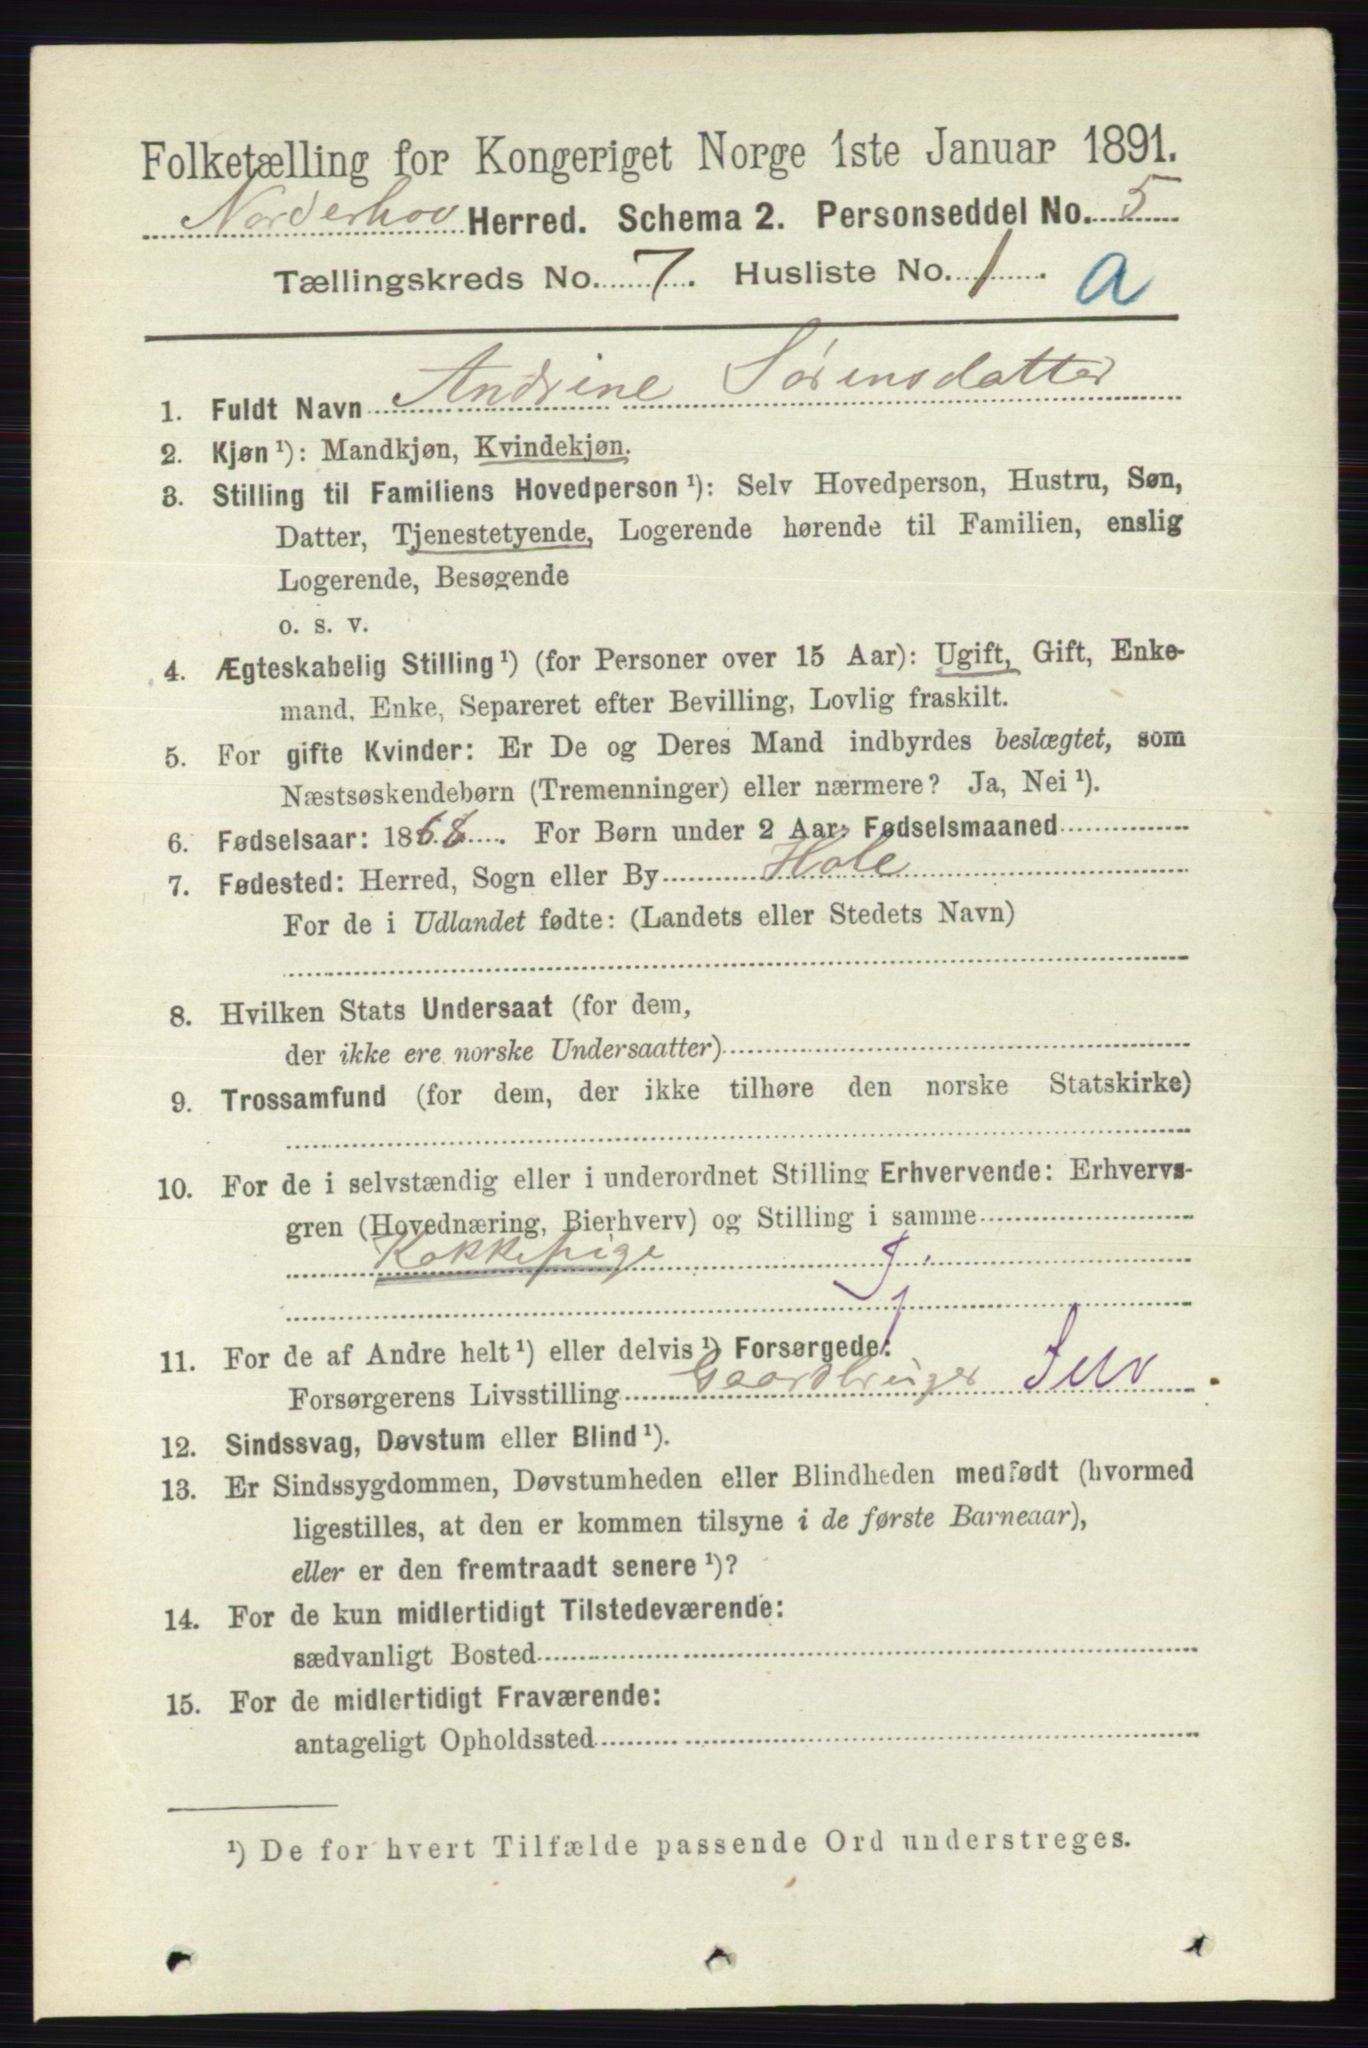 Folketælling for Kongeriget Norge 1ste Januar 1891.
Norderhov Herred. Schema 2. Personseddel No. 5
Tællingskreds No. 7. Husliste No. 1. a
1. Fuldt Navn Andrine Sørensdatter
2. Kjøn ¹): Mandkjøn, Kvindekjøn.
3. Stilling til Familiens Hovedperson ¹): Selv Hovedperson, Hustru, Søn,
Datter, Tjenestetyende, Logerende hørende til Familien, enslig
Logerende, Besøgende
o. s. v.
4. Ægteskabelig Stilling ¹) (for Personer over 15 Aar): Ugift, Gift, Enke-
mand, Enke, Separeret efter Bevilling, Lovlig fraskilt.
5. For gifte Kvinder: Er De og Deres Mand indbyrdes beslægtet, som
Næstsøskendebørn (Tremenninger) eller nærmere? Ja, Nei ¹).
6. Fødselsaar: 1868. For Børn under 2 Aar: Fødselsmaaned
7. Fødested: Herred, Sogn eller By Hole
For de i Udlandet fødte: (Landets eller Stedets Navn)
8. Hvilken Stats Undersaat (for dem,
der ikke ere norske Undersaatter)
9. Trossamfund (for dem, der ikke tilhøre den norske Statskirke)
10. For de i selvstændig eller i underordnet Stilling Erhvervende: Erhvervs-
gren (Hovednæring, Bierhverv) og Stilling i samme
Kokkepige
11. For de af Andre helt ¹) eller delvis ¹) Forsørgede:
Forsørgerens Livsstilling Gaardbruger Selv
12. Sindssvag, Døvstum eller Blind ¹).
13. Er Sindssygdommen, Døvstumheden eller Blindheden medfødt (hvormed
ligestilles, at den er kommen tilsyne i de første Barneaar),
eller er den fremtraadt senere ¹)?
14. For de kun midlertidigt Tilstedeværende:
sædvanligt Bosted
15. For de midlertidigt Fraværende:
antageligt Opholdssted
¹) De for hvert Tilfælde passende Ord understreges.